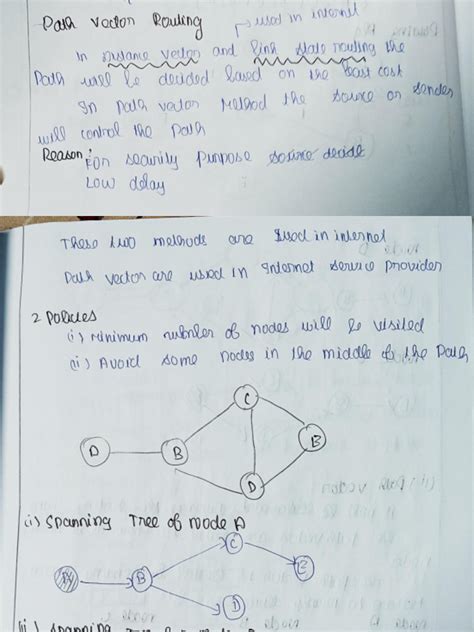 Path Vector Routing
used in internet
In Distance vector and link state routing the
Path will be decided based on the least cost
In Path vector Method the source or sender
will control the Path
Reason:
For security purpose source decide
Low delay
These two methods are used in internet
Path vector are used in Internet service provider
2 Policies
(i) Minimum number of nodes will be visited
(ii) Avoid some nodes in the middle of the Path
C
D B B
D
(i) Spanning Tree of node A
C
A B E
D